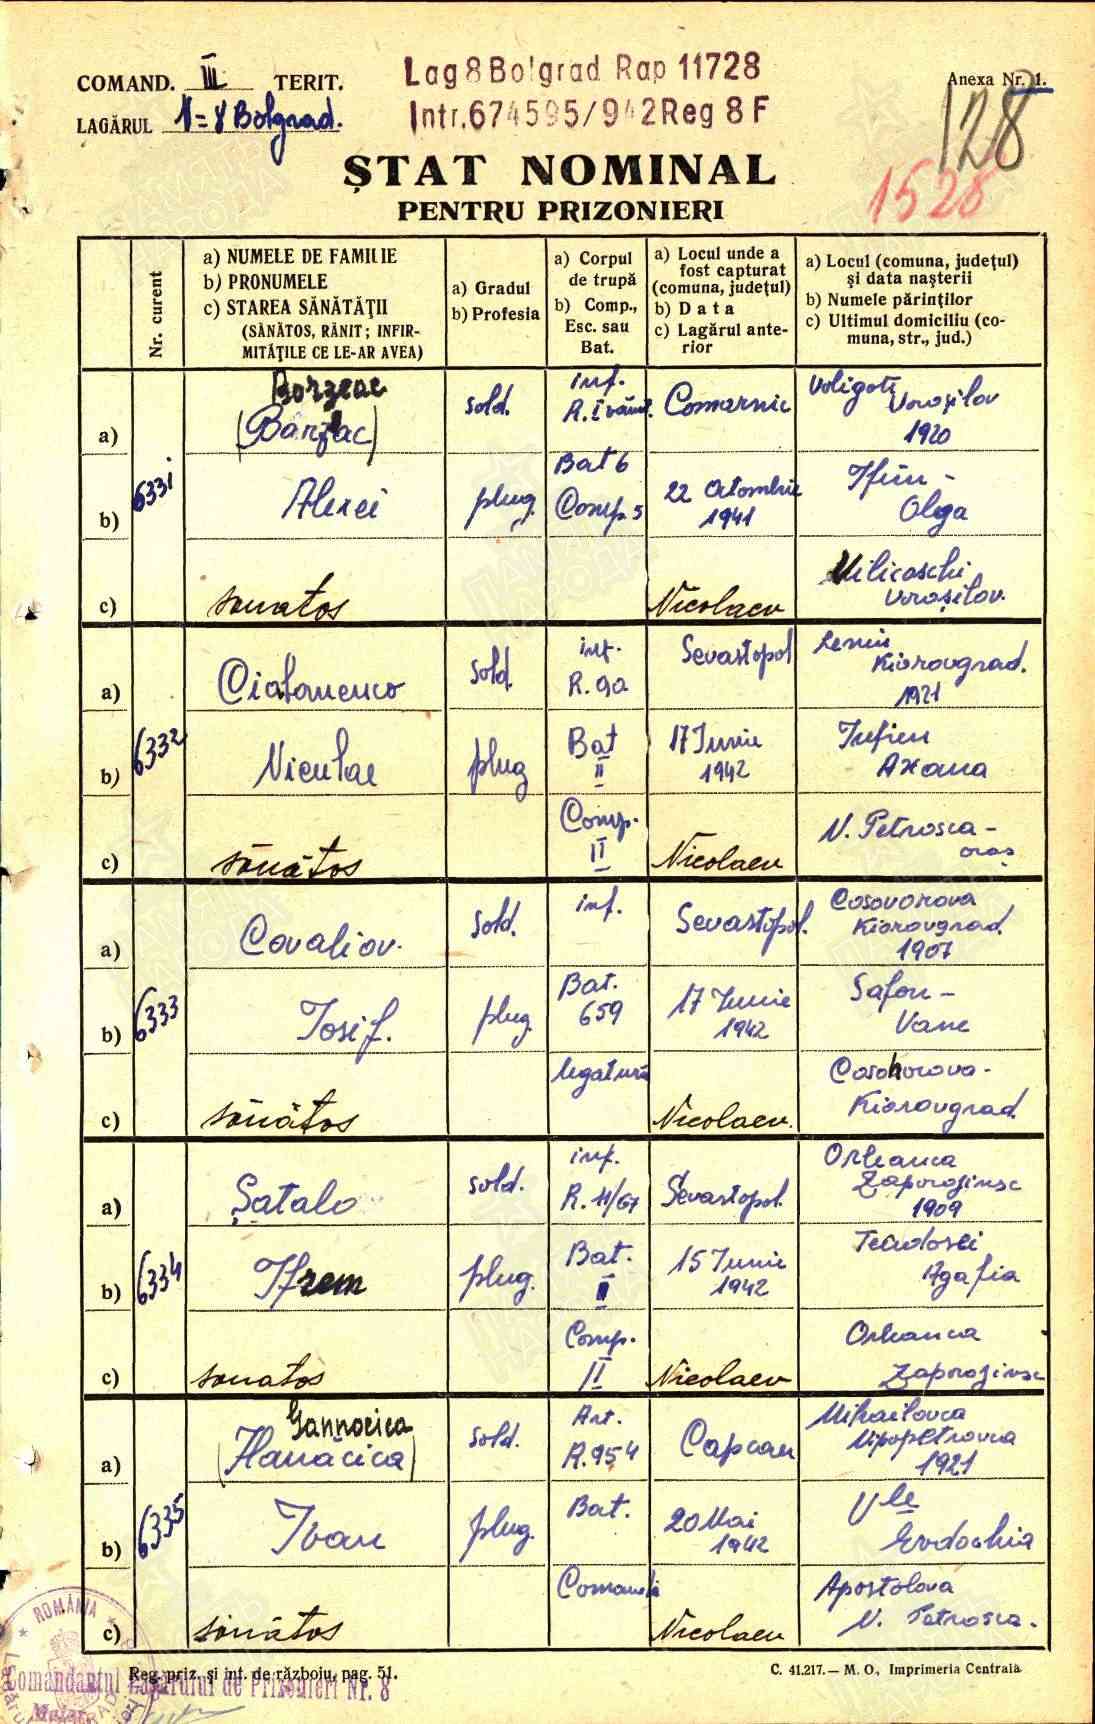 COMAND. III TERIT.
LAGĂRUL 1=8 Bolgrad.
Lag 8 Bolgrad Rap 11728
Intr. 674595/942 Reg 8 F
Anexa Nr. 1.
128
1528
ȘTAT NOMINAL
PENTRU PRIZONIERI
Nr. curent
a) NUMELE DE FAMILIE
b) PRONUMELE
c) STAREA SĂNĂTĂȚII
(SĂNĂTOS, RĂNIT; INFIR-
MITĂȚILE CE LE-AR AVEA)
a) Gradul
b) Profesia
a) Corpul
de trupă
b) Comp.,
Esc. sau
Bat.
a) Locul unde a
fost capturat
(comuna, județul)
b) Data
c) Lagărul ante-
rior
a) Locul (comuna, județul)
și data nașterii
b) Numele părinților
c) Ultimul domiciliu (co-
muna, str., jud.)
6331
a) Borzeac
(Bârzac)
sold.
inf.
Comarnic
Voroșilov
1920
b) Alexei
plug.
Bat 6
Comp. 5
22 Octombrie
1941
Olga
c) sănatos
Nicolaev
Voroșilov.
6332
a) Ciatonenco
sold.
inf.
R. 90
Sevastopol
Lenin
Kiorovgrad.
1921
b) Niculae
plug
Bat
II
17 Iunie
1942
Axana
c) sănătos
Comp.
II
Nicolaev
N. Petrosca -
oraș
6333
a) Covaliov.
sold.
inf.
Sevastopol.
Cosovorova
Kiorovgrad.
1907
b) Iosif.
plug.
Bat.
659
17 Iunie
1942
Safon -
c) sănătos
legatură
Nicolaev.
Cosohorova -
Kiorovgrad.
6334
a) Șatalo
sold.
inf.
R. 11/67
Sevastopol.
Orleanca
Zaporojinsc
1909
b) Ifrem
plug.
Bat.
II
15 Iunie
1942
Teadosei
Agafia
c) sănatos
Comp.
II
Nicolaev
Orleanca
Zaporojinsc
6335
a) Gannocica
(Hanăcica)
sold.
Art.
R. 954
Capcan
Mihailovca
Nipopetrovca
1921
b) Ivan
plug.
Bat.
20 Mai
1942
Vle
Evdochia
c) sănătos
Nicolaev
Apostolova
N. Petrosca.
ROMÂNIA
Comandantul Lagărului de Prizonieri Nr. 8
Reg. priz. și int. de războiu, pag. 51.
C. 41.217.— M. O., Imprimeria Centrală